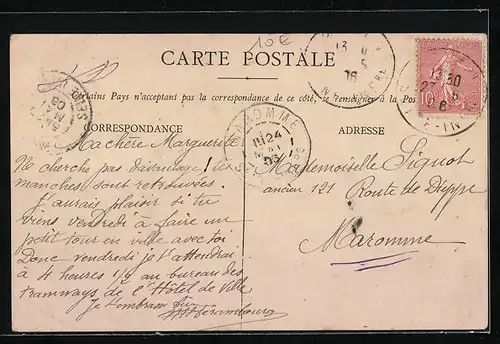 10€
CARTE POSTALE
Certains Pays n'acceptant pas la correspondance de ce côté, se renseigner à la Poste
CORRESPONDANCE
ADRESSE
Ma chère Marguerite
Ne cherche pas davantage ! les
manches sont retrouvées.
J'aurais plaisir si tu
viens vendredi à faire un
petit tour en ville avec toi
Donc vendredi je t'attendrai
à 4 heures 1/4 au bureau des
tramways de l'Hôtel de Ville
Je t'embrasse
Mademoiselle Signol
ancien 121 Route de Dieppe
Maromme
MAROMME
24